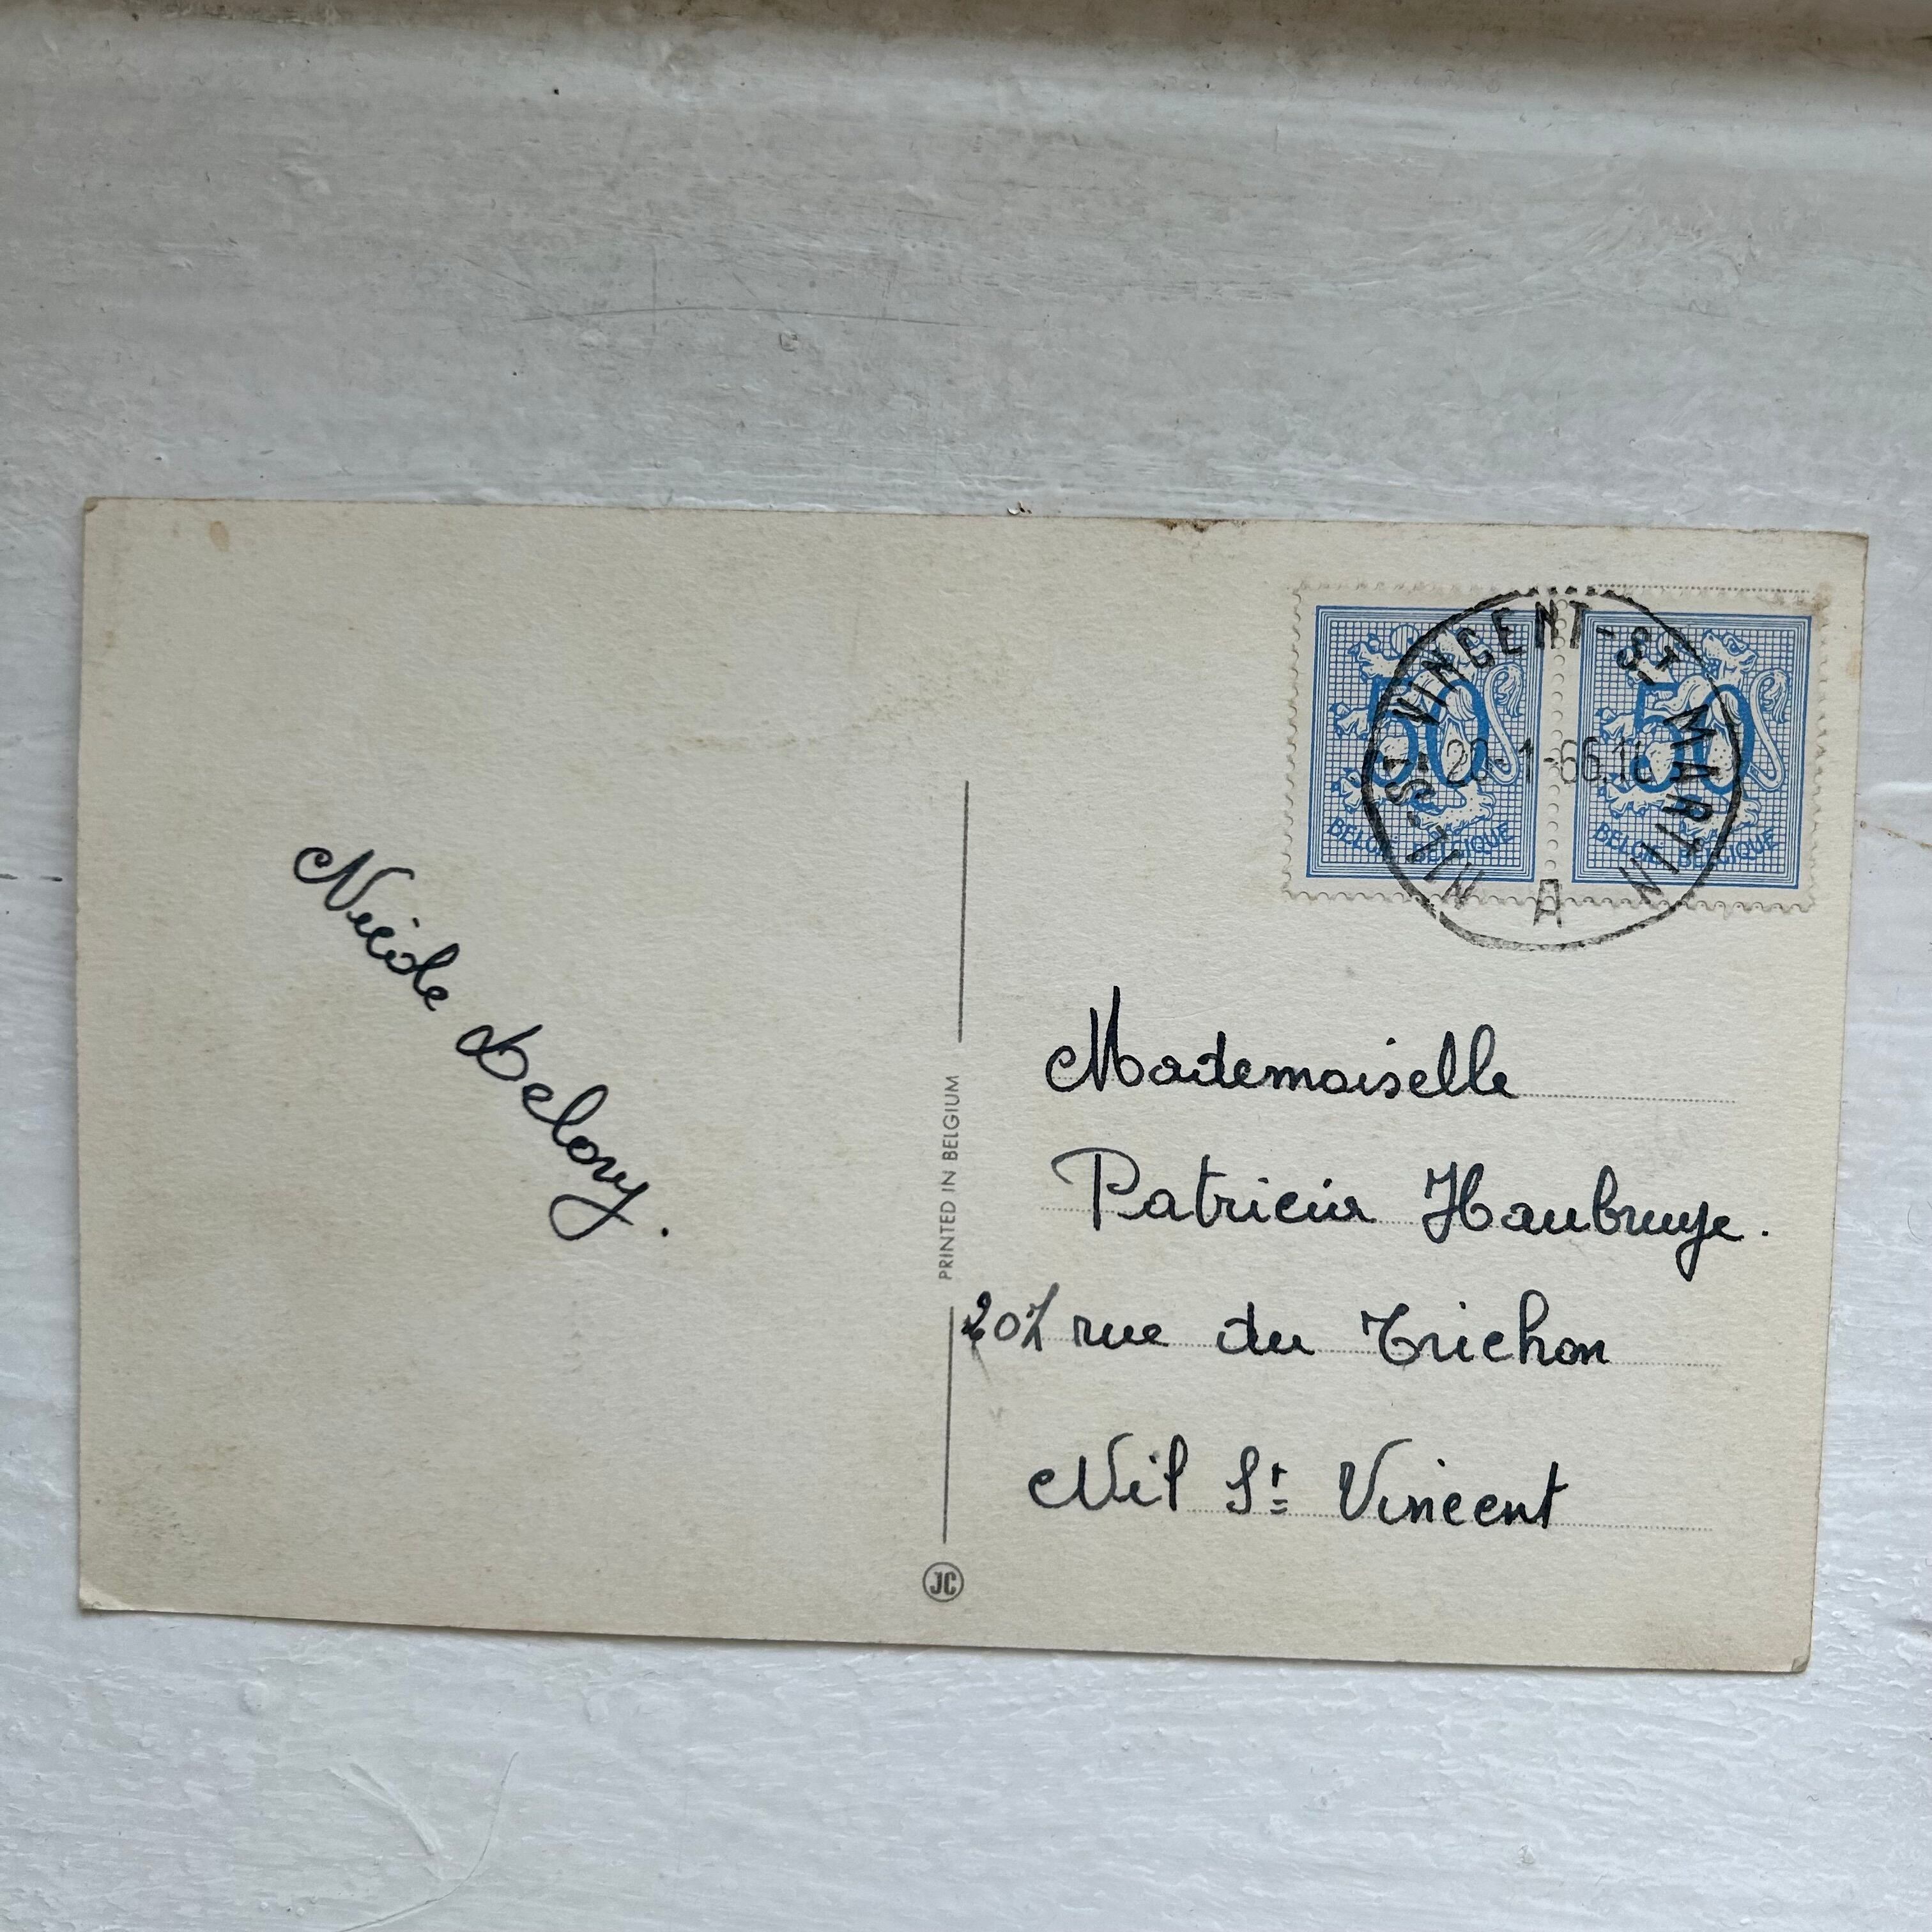 50 50
BELGIË-BELGIQUE BELGIË-BELGIQUE
NIL-ST-VINCENT-ST-MARTIN
-1-66
A
Nicole Delory.
PRINTED IN BELGIUM
JC
Mademoiselle
Patricia Haubruye.
207 rue du Trichon
Nil St Vincent